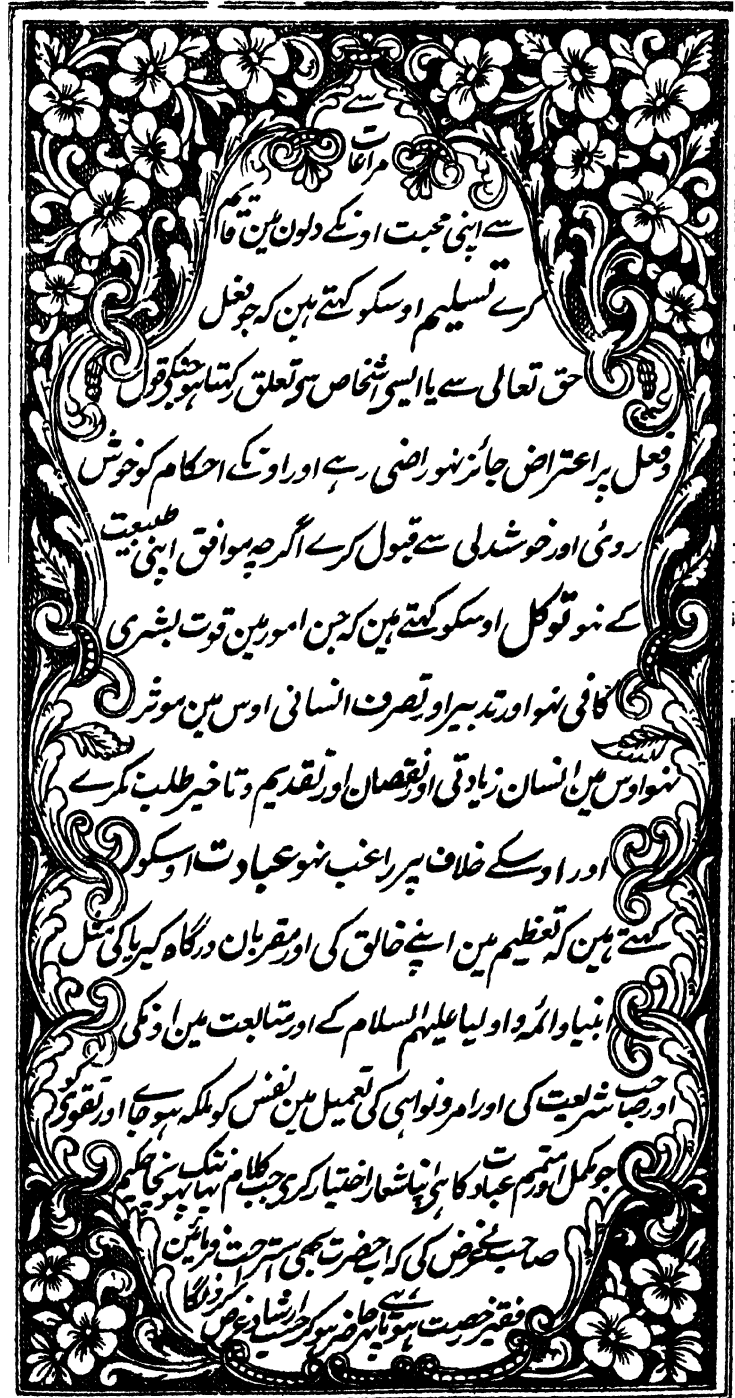 سے
مراعات
سے اپنی محبت اونکے دلون مین قائم
کرے تسیلیم اوسکو کہتے ہین کہ جو فعل
حق تعالی سے یا ایسی اشخاص سے تعلق رکہتا ہو جنکے قول
و فعل پر اعتراض جائز نہو راضی رہے اور اونکے احکام کو خوش
روئی اور خوشدلی سے قبول کرے اگرچہ موافق اپنی طبیعت
کے نہو توکل اوسکو کہتے ہین کہ جن امور مین قوت بشری
کافی نہو اور تدبیر اور تصرف انسانی اوس مین موثر
نہو اوس مین انسان زیادتی اور نقصان اور تقدیم و تاخیر طلب نکرے
اور اوسکے خلاف پر راغب نہو عبادت اوسکو
کہتے ہین کہ تعظیم مین اپنے خالق کی اور مقربان درگاہ کبریا کی مثل
انبیا و ائمہ و اولیا علیہم السلام کے اور متابعت مین اونکی
اور صاحب شریعت کی اور امر و نواہی کی تعمیل مین نفس کو ملکہ ہو جاے اور تقوی کو
جو مکمل اور متمم عبادت کا ہی اپنا شعار اختیار کری جب کلام یہانتک پہونچا حکیم
صاحب نے عرض کی کہ اب حضرت بھی استراحت فرمائین
فقیر رخصت ہوتا ہے پہر حاضر ہو کر حسب ارشاد عرض کرونگا